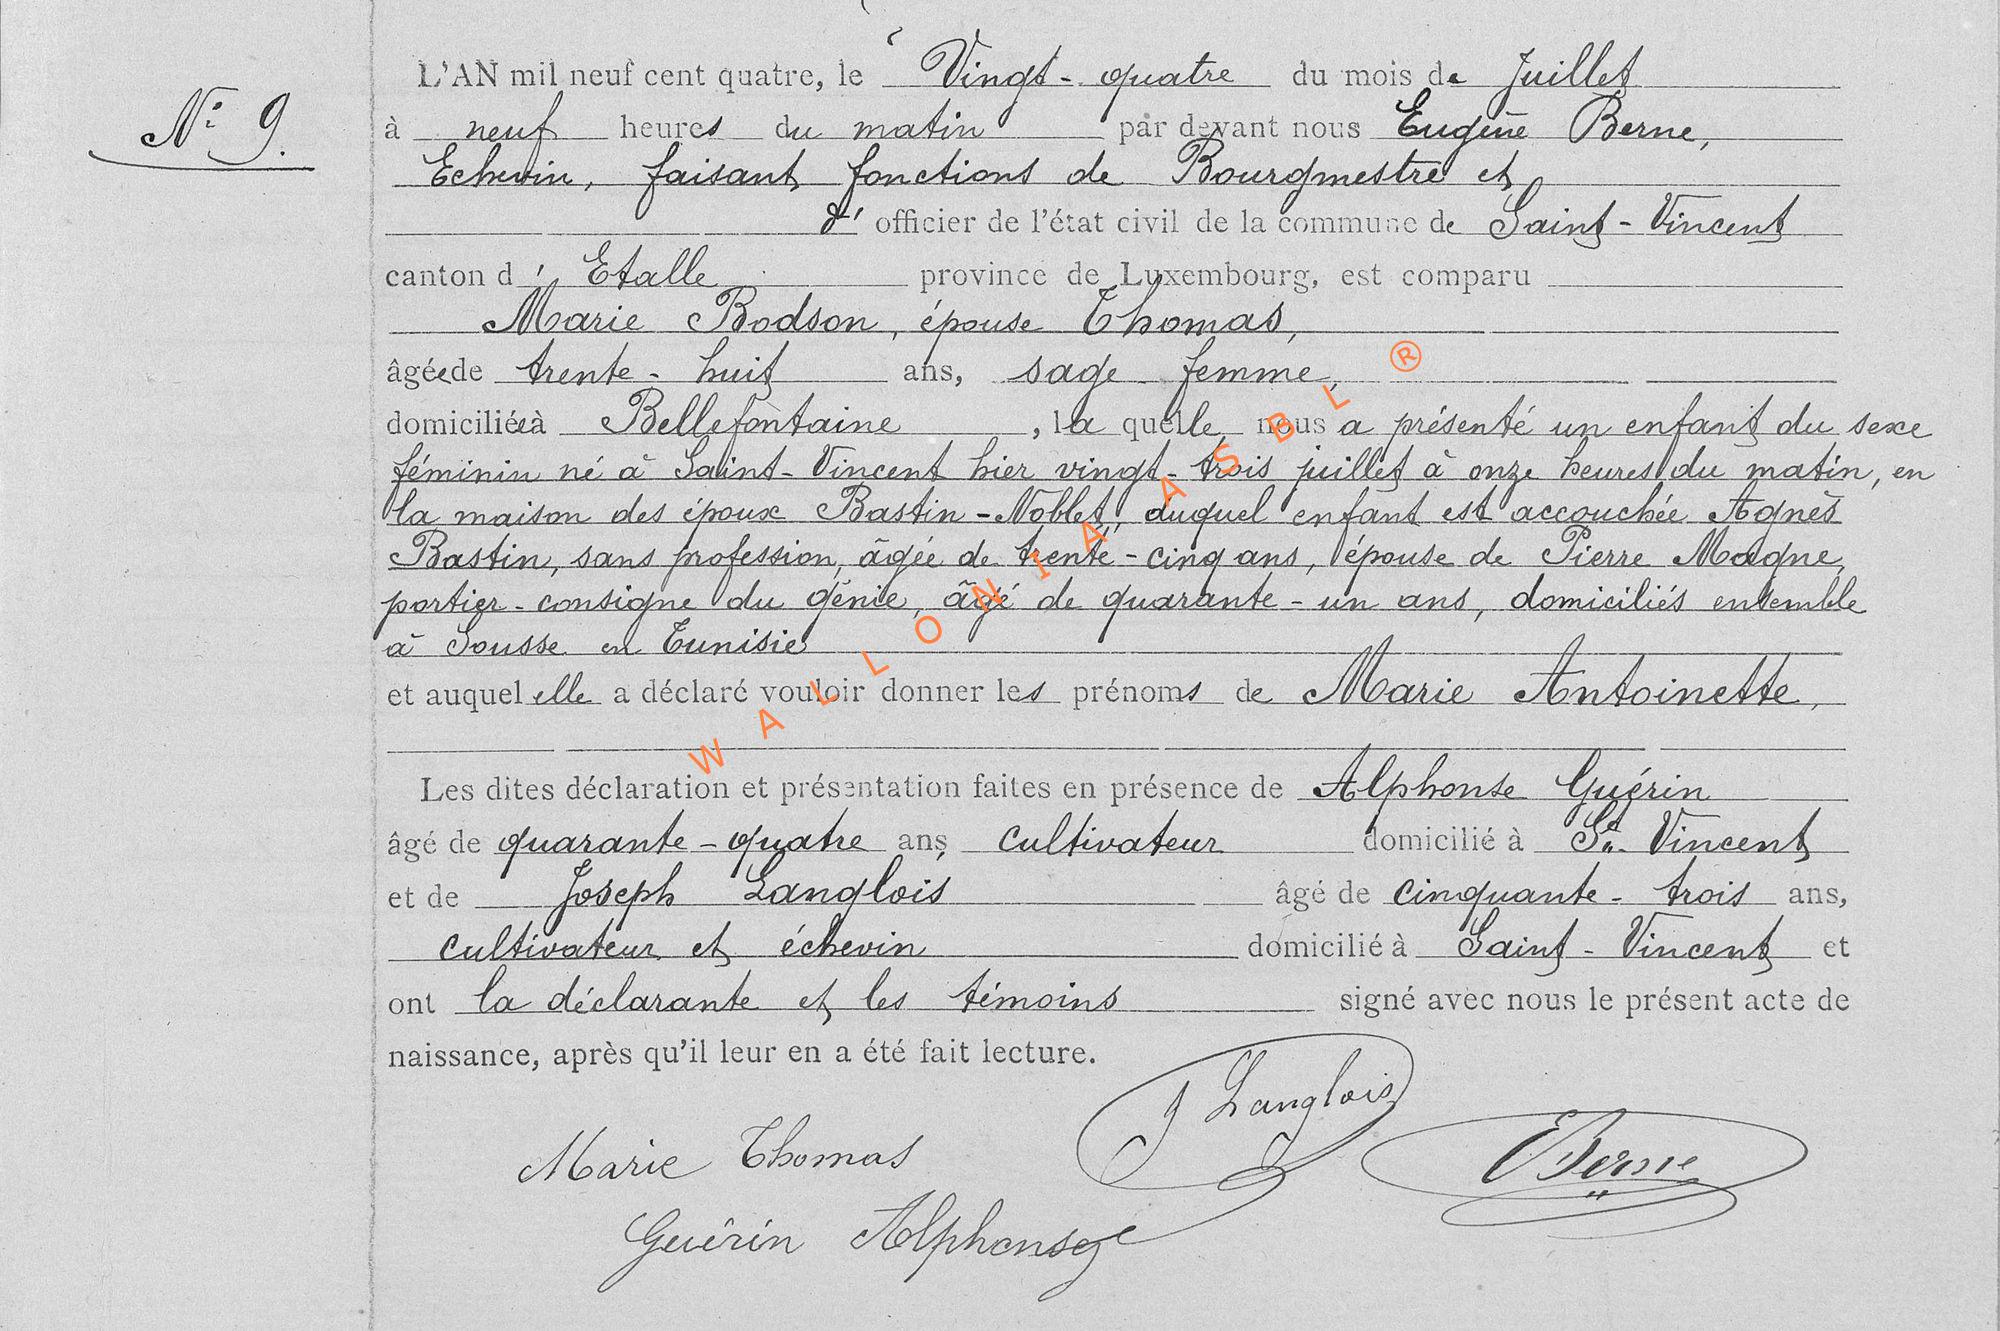 L'AN mil neuf cent quatre, le Vingt-quatre du mois de Juillet
N° 9.
à neuf heures du matin par devant nous Eugène Berne,
Echevin, faisant fonctions de Bourgmestre et
d' officier de l'état civil de la commune de Saint-Vincent
canton d' Etalle province de Luxembourg, est comparu
Marie Bodson, épouse Thomas,
âgée de trente-huit ans, sage femme,
domiciliée à Bellefontaine, la quelle nous a présenté un enfant du sexe
féminin né à Saint-Vincent hier vingt-trois juillet à onze heures du matin, en
la maison des époux Bastin-Noblet, duquel enfant est accouchée Agnès
Bastin, sans profession, âgée de trente-cinq ans, épouse de Pierre Magne,
portier-consigne du génie, âgé de quarante-un ans, domiciliés ensemble
à Sousse en Tunisie
et auquel elle a déclaré vouloir donner les prénoms de Marie Antoinette,
Les dites déclaration et présentation faites en présence de Alphonse Guérin
âgé de quarante-quatre ans, cultivateur domicilié à St. Vincent
et de Joseph Langlois âgé de cinquante-trois ans,
cultivateur et échevin domicilié à Saint-Vincent et
ont la déclarante et les témoins signé avec nous le présent acte de
naissance, après qu'il leur en a été fait lecture.
J Langlois
Marie Thomas
EBerne
Guérin Alphonse
WALLONIA ASBL ®